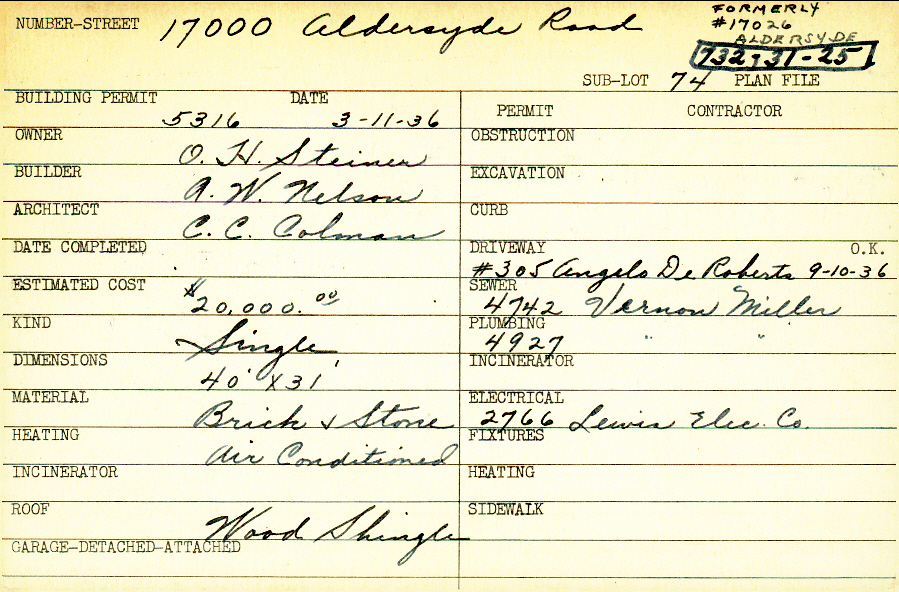 FORMERLY
NUMBER-STREET 17000 Aldersyde Road #17026
ALDERSYDE
732-31-25
SUB-LOT 74 PLAN FILE
BUILDING PERMIT DATE
5316 3-11-36
OWNER
O. H. Steiner
BUILDER
A. W. Nelson
ARCHITECT
C. C. Colman
DATE COMPLETED
ESTIMATED COST
$20,000.00
KIND
Single
DIMENSIONS
40' X 31'
MATERIAL
Brick & Stone
HEATING
Air Conditioned
INCINERATOR
ROOF
Wood Shingle
GARAGE-DETACHED-ATTACHED
PERMIT CONTRACTOR
OBSTRUCTION
EXCAVATION
CURB
DRIVEWAY O.K.
#305 Angelo De Roberts 9-10-36
SEWER
4742 Vernon Miller
PLUMBING
4927 " "
INCINERATOR
ELECTRICAL
2766 Lewis Elec. Co.
FIXTURES
HEATING
SIDEWALK